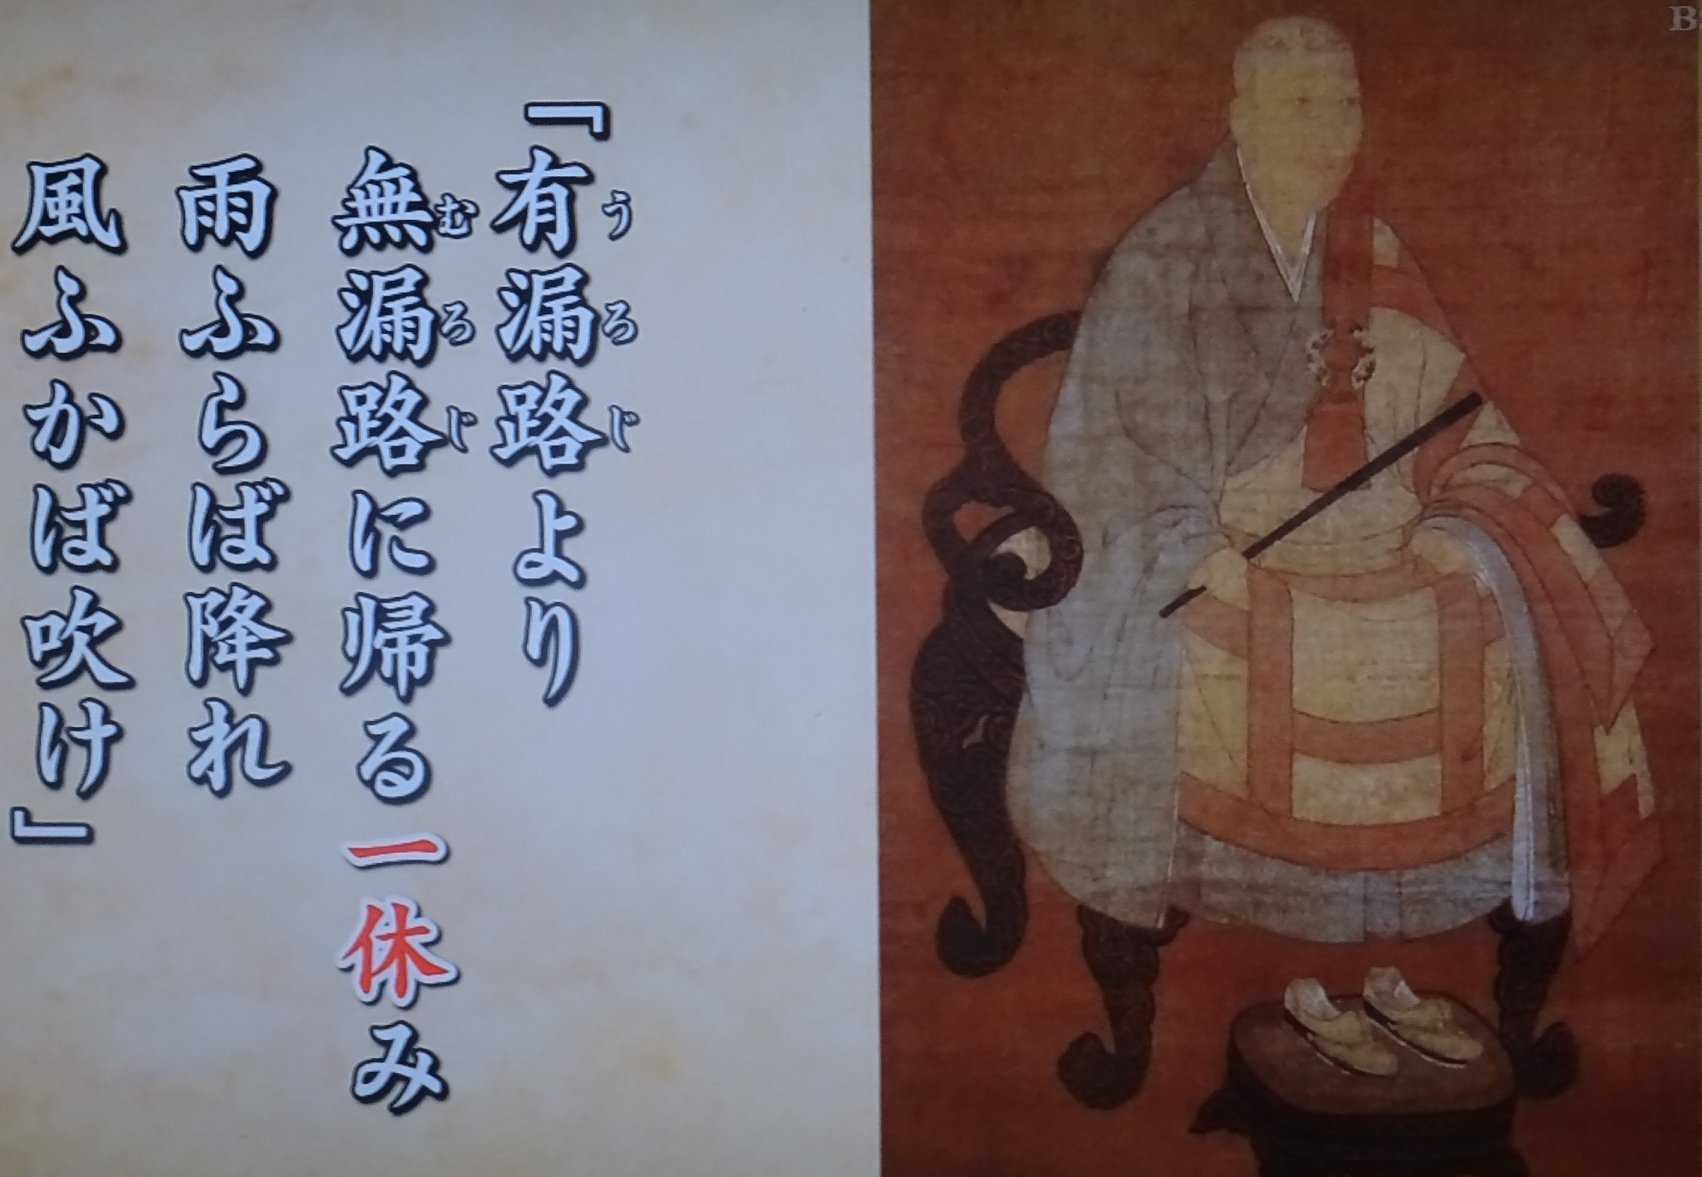 「有漏路より
うろじ
無漏路に帰る一休み
むろじ
雨ふらば降れ
風ふかば吹け」
B